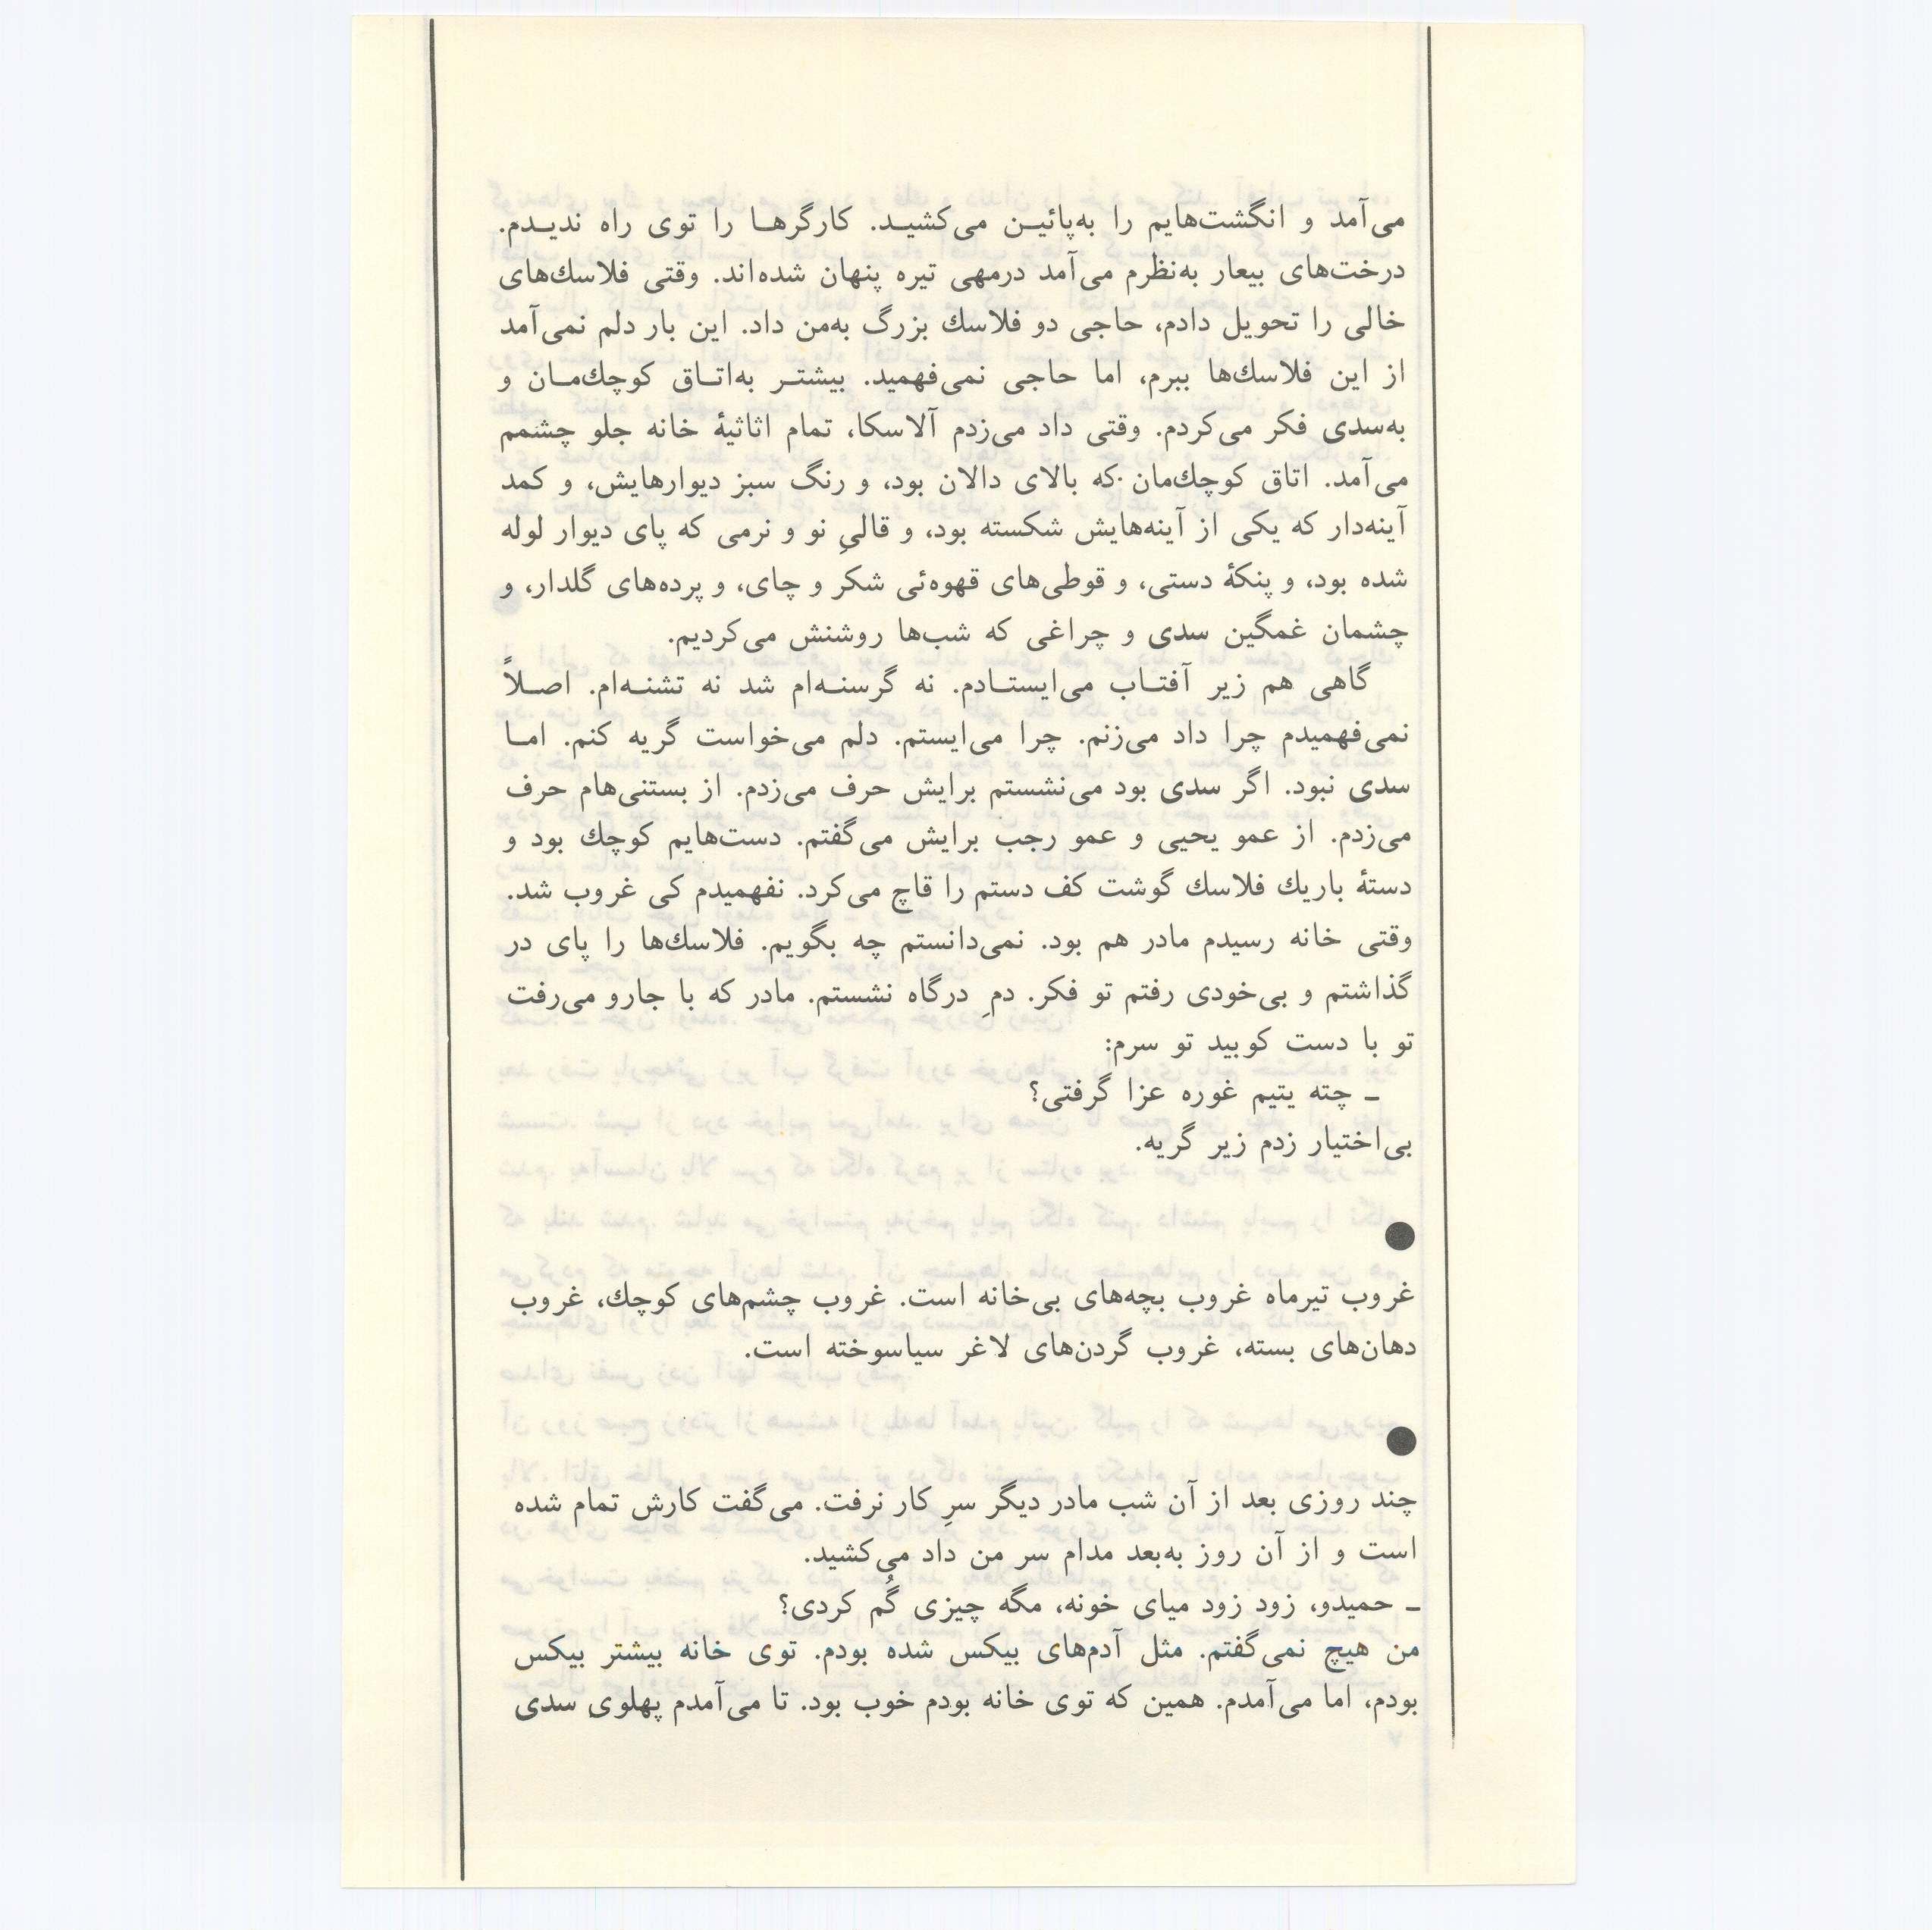 می‌آمد و انگشت‌هایم را به‌پائیـن می‌کشیـد. کارگرهـا را توی راه ندیـدم.
درخت‌های بیعار به‌نظرم می‌آمد درمهی تیره پنهان شده‌اند. وقتی فلاسك‌های
خالی را تحویل دادم، حاجی دو فلاسك بزرگ به‌من داد. این بار دلم نمی‌آمد
از این فلاسك‌ها ببرم، اما حاجی نمی‌فهمید. بیشتـر به‌اتـاق کوچك‌مـان و
به‌سدی فکر می‌کردم. وقتی داد می‌زدم آلاسکا، تمام اثاثیهٔ خانه جلو چشمم
می‌آمد. اتاق کوچك‌مان که بالای دالان بود، و رنگ سبز دیوارهایش، و کمد
آینه‌دار که یکی از آینه‌هایش شکسته بود، و قالیِ نو و نرمی که پای دیوار لوله
شده بود، و پنکهٔ دستی، و قوطی‌های قهوه‌ئی شکر و چای، و پرده‌های گلدار، و
چشمان غمگین سدی و چراغی که شب‌ها روشنش می‌کردیم.
گاهی هم زیر آفتـاب می‌ایستـادم. نه گرسنـه‌ام شد نه تشنـه‌ام. اصـلاً
نمی‌فهمیدم چرا داد می‌زنم. چرا می‌ایستم. دلم می‌خواست گریه کنم. امـا
سدی نبود. اگر سدی بود می‌نشستم برایش حرف می‌زدم. از بستنی‌هام حرف
می‌زدم. از عمو یحیی و عمو رجب برایش می‌گفتم. دست‌هایم کوچك بود و
دستهٔ باریك فلاسك گوشت کف دستم را قاچ می‌کرد. نفهمیدم کی غروب شد.
وقتی خانه رسیدم مادر هم بود. نمی‌دانستم چه بگویم. فلاسك‌ها را پای در
گذاشتم و بی‌خودی رفتم تو فکر. دمِ درگاه نشستم. مادر که با جارو می‌رفت
تو با دست کوبید تو سرم:
ـ چته یتیم غوره عزا گرفتی؟
بی‌اختیار زدم زیر گریه.
●
غروب تیرماه غروب بچه‌های بی‌خانه است. غروب چشم‌های کوچك، غروب
دهان‌های بسته، غروب گردن‌های لاغر سیاسوخته است.
●
چند روزی بعد از آن شب مادر دیگر سرِ کار نرفت. می‌گفت کارش تمام شده
است و از آن روز به‌بعد مدام سر من داد می‌کشید.
ـ حمیدو، زود زود میای خونه، مگه چیزی گُم کردی؟
من هیچ نمی‌گفتم. مثل آدم‌های بیکس شده بودم. توی خانه بیشتر بیکس
بودم، اما می‌آمدم. همین که توی خانه بودم خوب بود. تا می‌آمدم پهلوی سدی